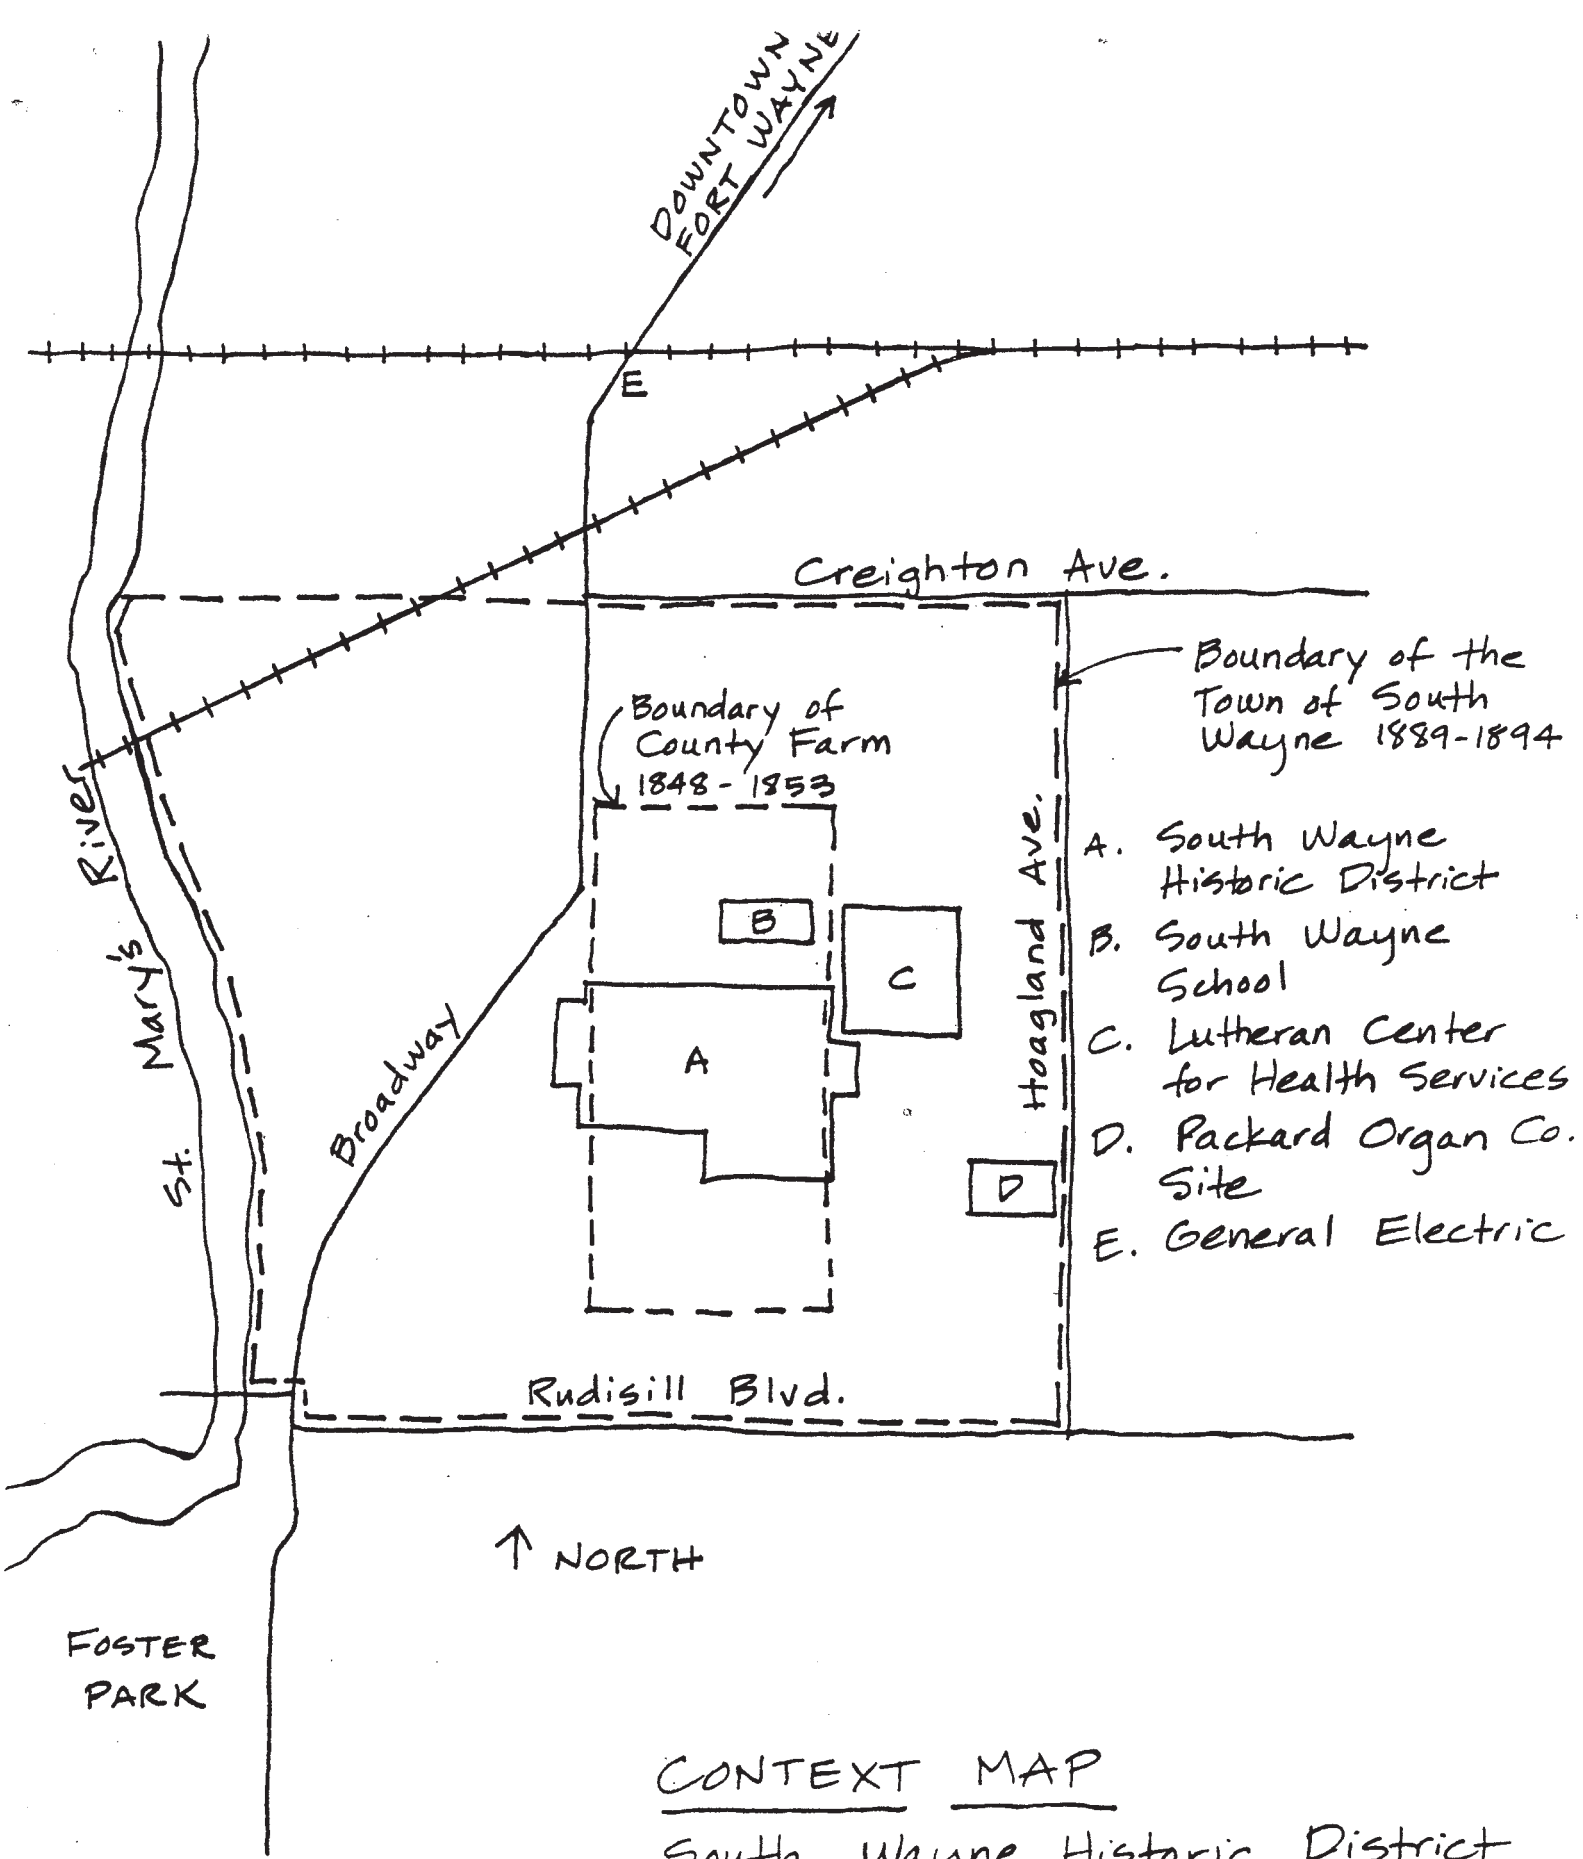 DOWNTOWN
FORT WAYNE
E
Creighton Ave.
Boundary of the
Town of South
Wayne 1889-1894
Boundary of
County Farm
1848 - 1853
St. Mary's River
Broadway
Hoagland Ave.
B
C
A
D
A. South Wayne
Historic District
B. South Wayne
School
C. Lutheran Center
for Health Services
D. Packard Organ Co.
Site
E. General Electric
Rudisill Blvd.
NORTH
FOSTER
PARK
CONTEXT MAP
South Wayne Historic District